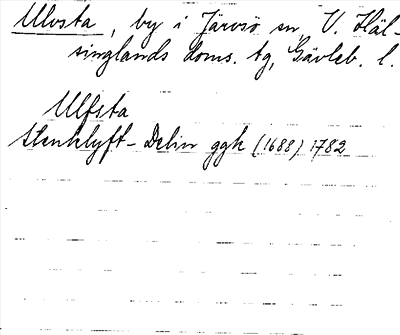 Ulvsta, by i Järvsö sn, V. Häl-
singlands doms. tg, Gävleb. l.
Ulfsta
Stenklyft-Delin ggk (1688) 1782